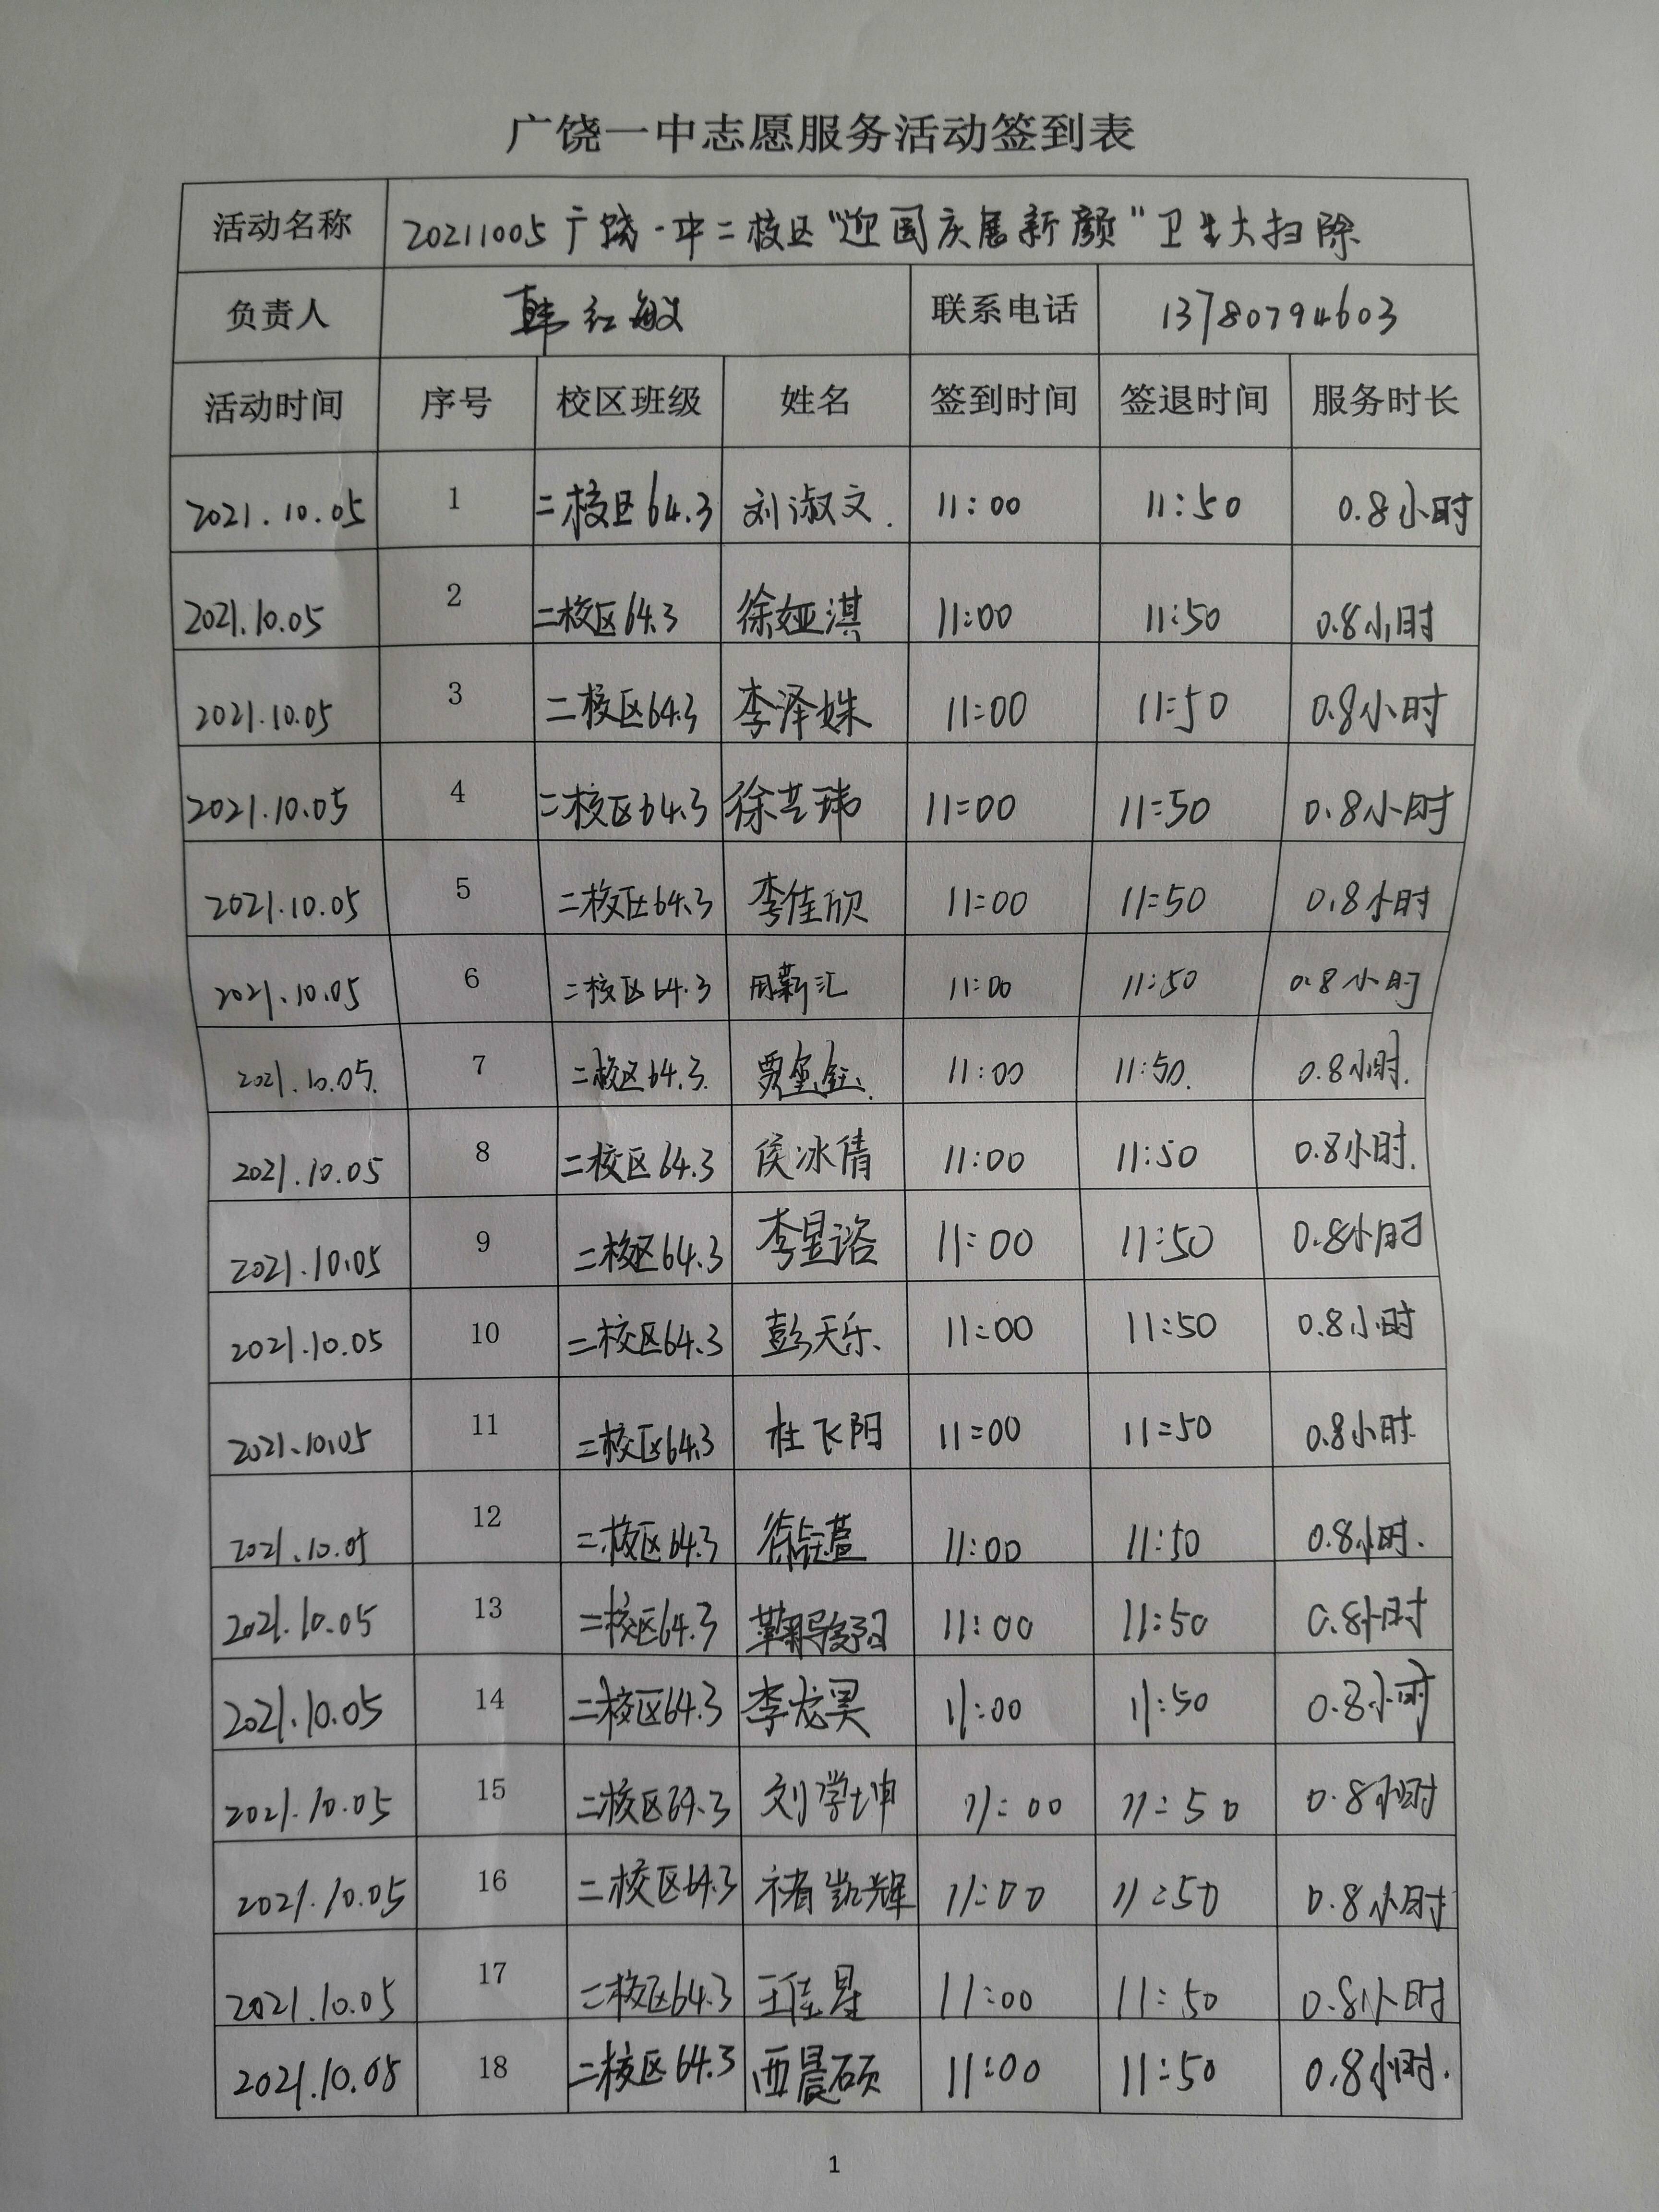 广饶一中志愿服务活动签到表
活动名称 20211005广饶一中二校区“迎国庆展新颜”卫生大扫除
负责人 韩红敏 联系电话 13780794603
活动时间 序号 校区班级 姓名 签到时间 签退时间 服务时长
2021.10.05 1 二校区64.3 刘淑文. 11:00 11:50 0.8小时
2021.10.05 2 二校区64.3 徐娅淇 11:00 11:50 0.8小时
2021.10.05 3 二校区64.3 李泽姝 11:00 11:50 0.8小时
2021.10.05 4 二校区64.3 徐艺玮 11:00 11:50 0.8小时
2021.10.05 5 二校区64.3 李佳欣 11:00 11:50 0.8小时
2021.10.05 6 二校区64.3 周薪汇 11:00 11:50 0.8小时
2021.10.05. 7 二校区64.3. 11:00 11:50. 0.8小时.
2021.10.05 8 二校区64.3 侯冰倩 11:00 11:50 0.8小时.
2021.10.05 9 二校区64.3 11:00 11:50 0.8小时
2021.10.05 10 二校区64.3 彭天乐 11:00 11:50 0.8小时
2021.10.05 11 二校区64.3 杜飞阳 11:00 11:50 0.8小时
2021.10.05 12 二校区64.3 11:00 11:50 0.8小时.
2021.10.05 13 二校区64.3 11:00 11:50 0.8小时
2021.10.05 14 二校区64.3 李龙昊 11:00 11:50 0.8小时
2021.10.05 15 二校区64.3 刘学坤 11:00 11:50 0.8小时
2021.10.05 16 二校区64.3 褚凯辉 11:00 11:50 0.8小时
2021.10.05 17 二校区64.3 王佳星 11:00 11:50 0.8小时
2021.10.05 18 二校区64.3 西晨硕 11:00 11:50 0.8小时.
1